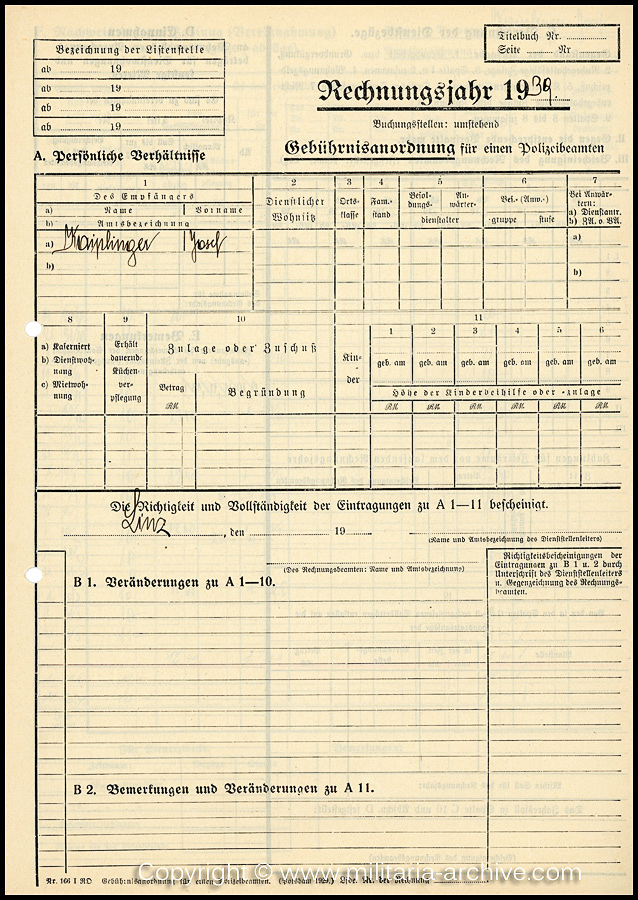 Bezeichnung der Listenstelle
ab 19
ab 19
ab 19
ab 19
Titelbuch Nr.
Seite Nr
Rechnungsjahr 1939
Buchungsstellen: umstehend
Gebührnisanordnung für einen Polizeibeamten
A. Persönliche Verhältnisse
1
Des Empfängers
a) Name Vorname
b) Amtsbezeichnung
a) Kaiplinger Josef
b)
2
Dienstlicher Wohnsitz
3
Ortsklasse
4
Fam.-stand
5
Besoldungs- Anwärter-
dienstalter
6
Bes.- (Anw.-)
-gruppe -stufe
7
Bei Anwärtern:
a) Dienstantr.
b) ZA. o. VA.
a)
b)
8
a) Kaserniert
b) Dienstwohnung
c) Mietwohnung
9
Erhält dauernd: Küchenverpflegung
10
Zulage oder Zuschuß
Betrag
RM.
Begründung
Kinder
11
1 2 3 4 5 6
geb. am geb. am geb. am geb. am geb. am geb. am
Höhe der Kinderbeihilfe oder -zulage
RM. RM. RM. RM. RM. RM.
Die Richtigkeit und Vollständigkeit der Eintragungen zu A 1—11 bescheinigt.
Linz, den 19
(Name und Amtsbezeichnung des Dienststellenleiters)
(Des Rechnungsbeamten: Name und Amtsbezeichnung)
B 1. Veränderungen zu A 1—10.
Richtigkeitsbescheinigungen der
Eintragungen zu B 1 u. 2 durch
Unterschrift des Dienststellenleiters
u. Gegenzeichnung des Rechnungsbeamten.
B 2. Bemerkungen und Veränderungen zu A 11.
Nr. 166 I RO Gebührnisanordnung für einen Polizeibeamten. (Potsdam 1929.)
Copyright © www.militaria-archive.com